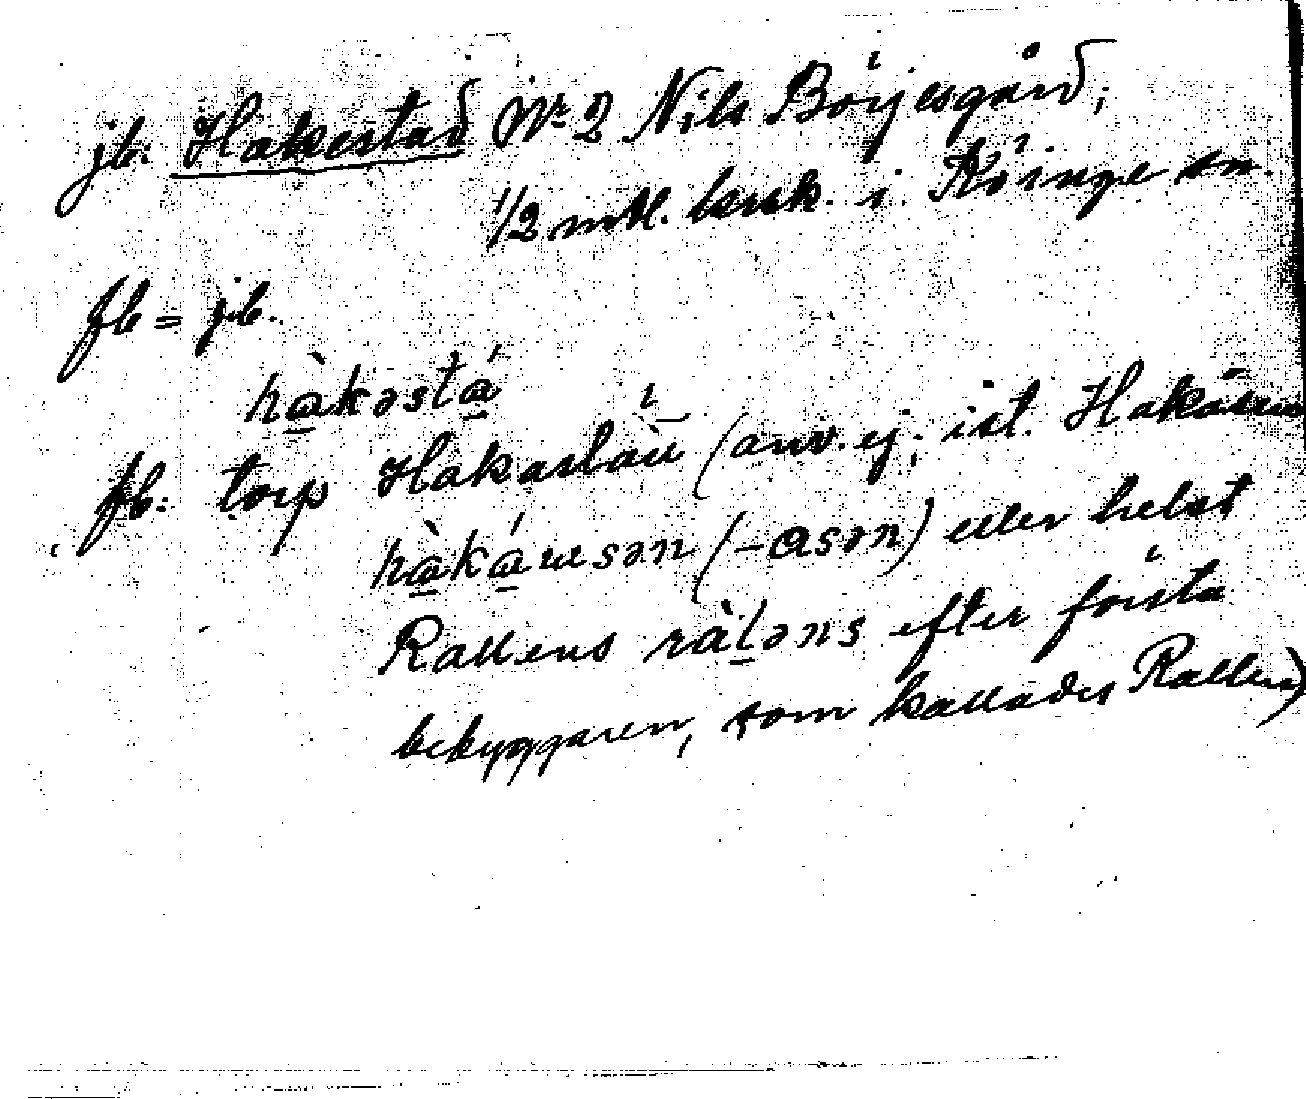 jb: Hakestad No 2 Nils Börjesgård;
1/2 mtl. krsk. i Köinge sn.
fb = jb.
hàkəstá
fb: torp Hakaslätt (anv. ej; ist. Hakåsen
hàkáusən (-asən) eller helst
Rallens ràləns efter första
bebyggaren, som kallades Rallen)